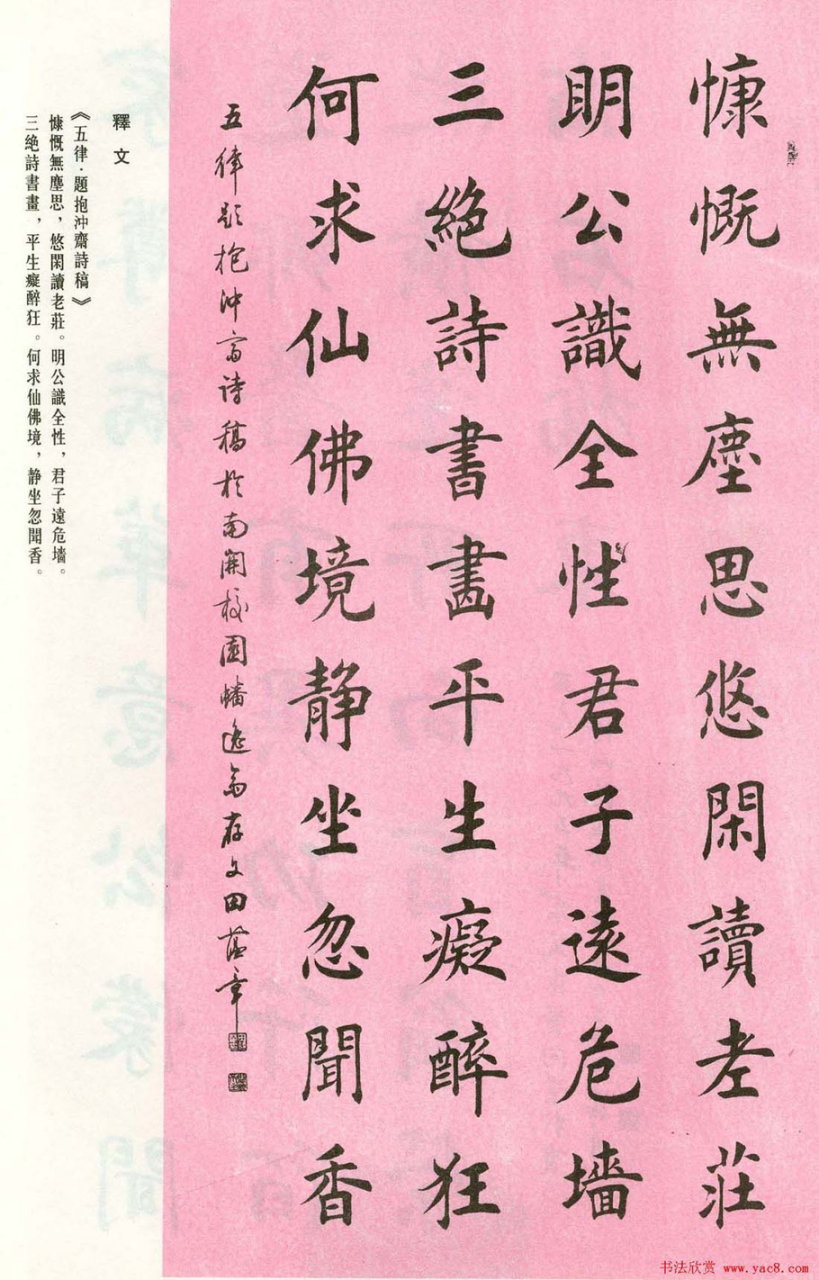 慷慨無塵思悠閑讀老莊
明公識全性君子遠危墻
三絕詩書畫平生癡醉狂
何求仙佛境静坐忽聞香
五律題抱沖齋詩稿於南開校園幡遙齋存文田蘊章
釋文
《五律·題抱沖齋詩稿》
慷慨無塵思，悠閑讀老莊。明公識全性，君子遠危墻。
三绝詩書畫，平生癡醉狂。何求仙佛境，静坐忽聞香。
书法欣赏 www.yac8.com